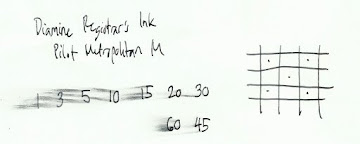 Diamine Registrar's Ink
Pilot Metropolitan M
1 3 5 10 15 20 30
60 45